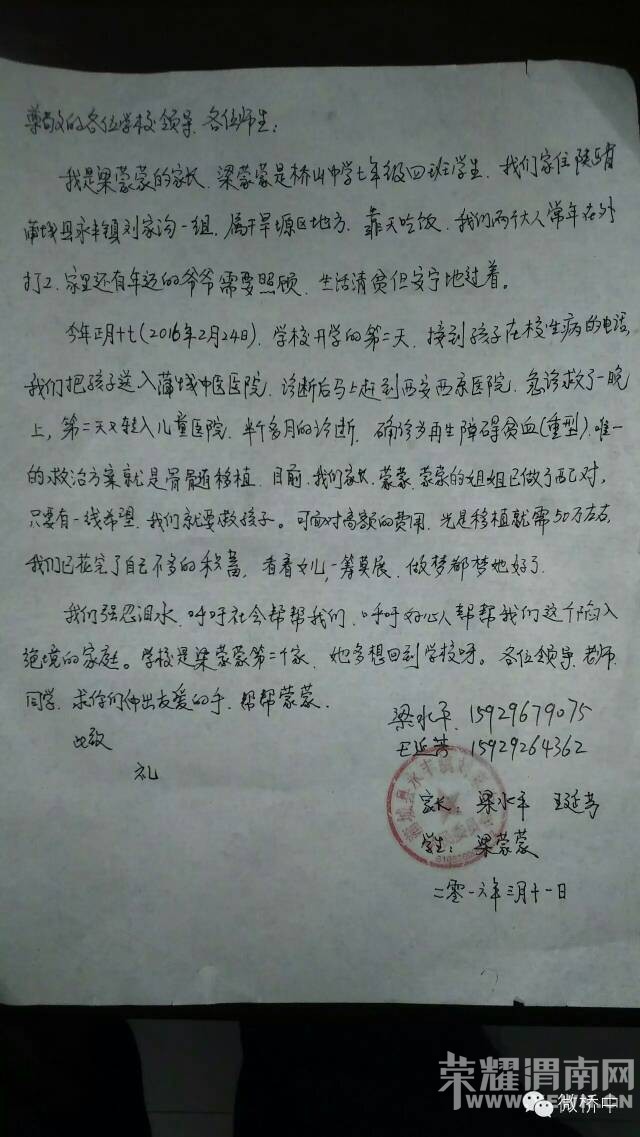 尊敬的各位学校领导、各位师生:
我是梁蒙蒙的家长,梁蒙蒙是桥山中学七年级四班学生,我们家住陕西省
蒲城县永丰镇刘家沟一组,属于旱塬区地方,靠天吃饭,我们两个大人常年在外
打工,家里还有年迈的爷爷需要照顾,生活清贫但安宁地过着。
今年正月十七(2016年2月24日),学校开学的第二天,接到孩子在校生病的电话,
我们把孩子送入蒲城中医医院,诊断后马上赶到西安西京医院,急诊救了一晚
上,第二天又转入儿童医院,半个多月的诊断,确诊为再生障碍贫血(重型),唯一
的救治方案就是骨髓移植,目前,我们家长、蒙蒙、蒙蒙的姐姐已做了配对,
只要有一线希望,我们就要救孩子。可面对高额的费用,光是移植就需50万左右,
我们已花完了自己不多的积蓄,看着女儿,一筹莫展,做梦都梦她好了,
我们强忍泪水,呼吁社会帮帮我们,呼吁好心人帮帮我们这个陷入
绝境的家庭。学校是梁蒙蒙第二个家,她多想回到学校呀。各位领导、老师、
同学,求你们伸出友爱的手,帮帮蒙蒙,
梁水平,15929679075
此致
王延芳 15929264362
礼
家长:梁水平 王延芳
学生:梁蒙蒙
二零一六年三月十一日
荣耀渭南网
微桥中